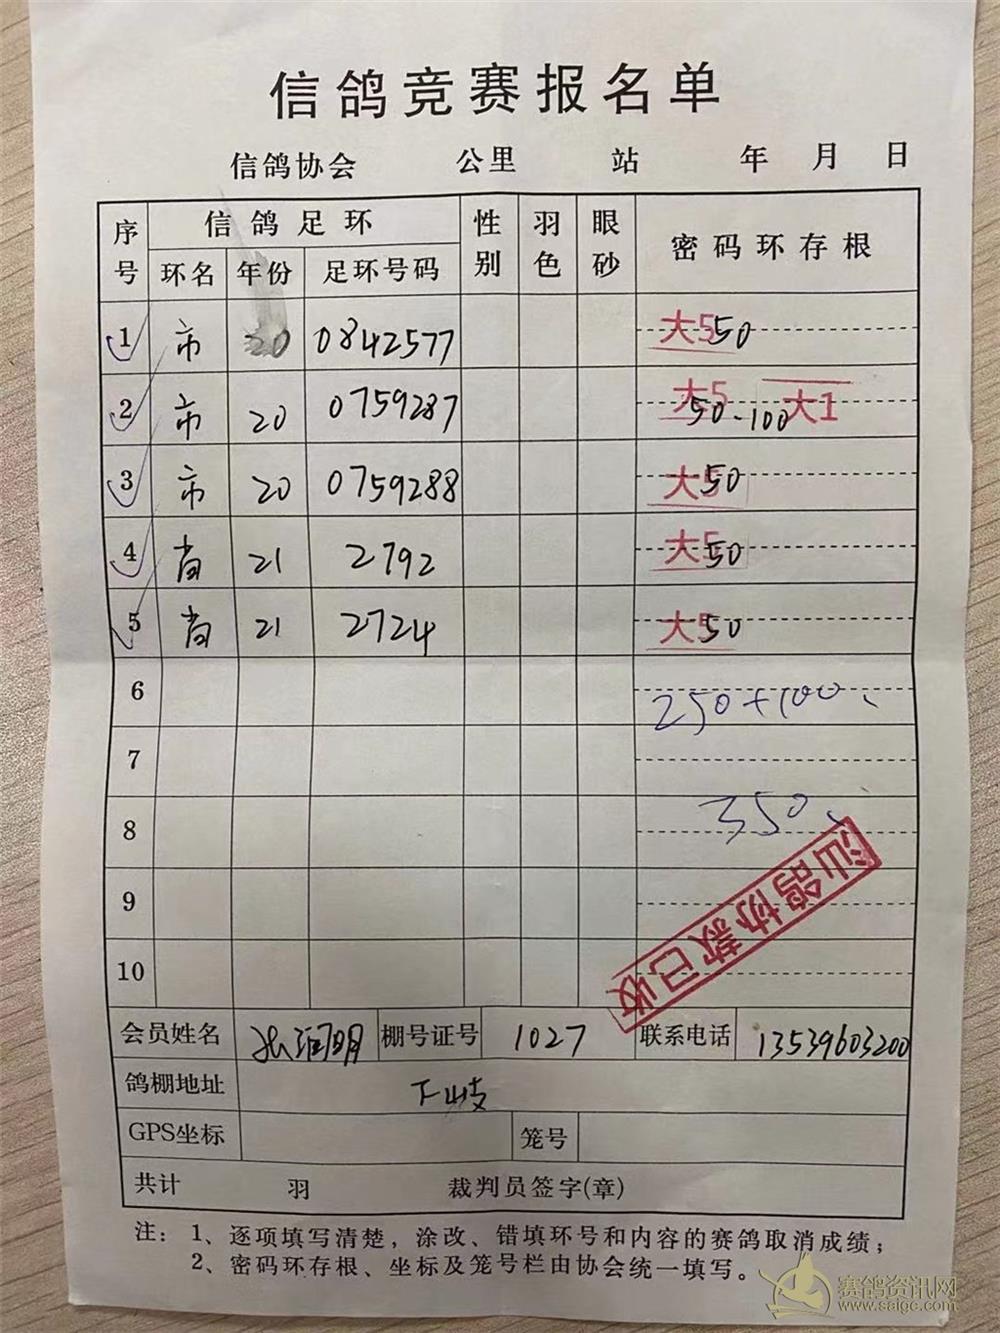 信鸽竞赛报名单
信鸽协会 公里 站 年 月 日
序号 信鸽足环 性别 羽色 眼砂 密码环存根
环名 年份 足环号码
1 市 20 0842577 大5 50
2 市 20 0759287 大5 50-100 大1
3 市 20 0759288 大5 50
4 省 21 2792 大5 50
5 省 21 2724 大5 50
6 250+100、
7
8 350、
9
10
汕鸽协款已收
会员姓名 张润明 棚号证号 1027 联系电话 13539603200
鸽棚地址 下岐
GPS坐标 笼号
共计 羽 裁判员签字(章)
注：1、逐项填写清楚，涂改、错填环号和内容的赛鸽取消成绩；
2、密码环存根、坐标及笼号栏由协会统一填写。
赛鸽资讯网
www.saigc.com